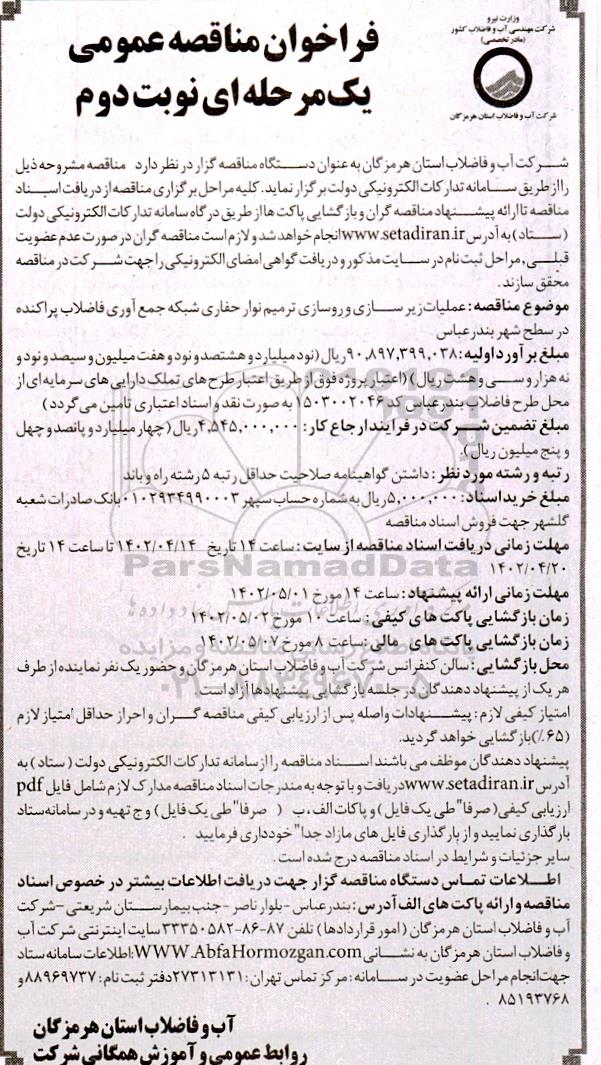 وزارت نیرو
شرکت مهندسی آب و فاضلاب کشور
(مادر تخصصی)
شرکت آب و فاضلاب استان هرمزگان
فراخوان مناقصه عمومی
یک مرحله ای نوبت دوم
شرکت آب و فاضلاب استان هرمزگان به عنوان دستگاه مناقصه گزار در نظر دارد مناقصه مشروحه ذیل
را از طریق سامانه تدارکات الکترونیکی دولت برگزار نماید. کلیه مراحل برگزاری مناقصه از دریافت اسناد
مناقصه تا ارائه پیشنهاد مناقصه گران و بازگشایی پاکت ها از طریق درگاه سامانه تدارکات الکترونیکی دولت
(ستاد) به آدرس www.setadiran.ir انجام خواهد شد و لازم است مناقصه گران در صورت عدم عضویت
قبلی, مراحل ثبت نام در سایت مذکور و دریافت گواهی امضای الکترونیکی را جهت شرکت در مناقصه
محقق سازند.
موضوع مناقصه: عملیات زیر سازی و روسازی ترمیم نوار حفاری شبکه جمع آوری فاضلاب پراکنده
در سطح شهر بندرعباس
مبلغ برآورد اولیه: ۹۰,۸۹۷,۳۹۹,۰۳۸ ریال (نود میلیارد و هشتصد و نود و هفت میلیون و سیصد و نود و
نه هزار و سی و هشت ریال) (اعتبار پروژه فوق از طریق اعتبار طرح های تملک دارایی های سرمایه ای از
محل طرح فاضلاب بندرعباس کد ۱۵۰۳۰۰۲۰۴۶ به صورت نقد و اسناد اعتباری تامین می گردد)
مبلغ تضمین شرکت در فرایند ارجاع کار: ۴,۵۴۵,۰۰۰,۰۰۰ ریال (چهار میلیارد و پانصد و چهل
و پنج میلیون ریال).
رتبه و رشته مورد نظر: داشتن گواهینامه صلاحیت حداقل رتبه ۵ رشته راه و باند
مبلغ خرید اسناد: ۵,۰۰۰,۰۰۰ ریال به شماره حساب سپهر ۰۱۰۲۹۳۴۹۹۰۰۰۳ بانک صادرات شعبه
گلشهر جهت فروش اسناد مناقصه
مهلت زمانی دریافت اسناد مناقصه از سایت: ساعت ۱۴ تاریخ ۱۴۰۲/۰۴/۱۴ تا ساعت ۱۴ تاریخ
۱۴۰۲/۰۴/۲۰
مهلت زمانی ارائه پیشنهاد: ساعت ۱۴ مورخ ۱۴۰۲/۰۵/۰۱
زمان بازگشایی پاکت های کیفی: ساعت ۱۰ مورخ ۱۴۰۲/۰۵/۰۲
زمان بازگشایی پاکت های مالی: ساعت ۸ مورخ ۱۴۰۲/۰۵/۰۷
محل بازگشایی: سالن کنفرانس شرکت آب و فاضلاب استان هرمزگان و حضور یک نفر نماینده از طرف
هر یک از پیشنهاد دهندگان در جلسه بازگشایی پیشنهادها آزاد است.
امتیاز کیفی لازم: پیشنهادات واصله پس از ارزیابی کیفی مناقصه گران و احراز حداقل امتیاز لازم
(۶۵٪) بازگشایی خواهد گردید.
پیشنهاد دهندگان موظف می باشند اسناد مناقصه را از سامانه تدارکات الکترونیکی دولت (ستاد) به
آدرس www.setadiran.ir دریافت و با توجه به مندرجات اسناد مناقصه مدارک لازم شامل فایل pdf
ارزیابی کیفی (صرفا" طی یک فایل) و پاکات الف، ب (صرفا" طی یک فایل) و ج تهیه و در سامانه ستاد
بارگذاری نمایید و از بارگذاری فایل های مازاد جدا" خودداری فرمایید .
سایر جزئیات و شرایط در اسناد مناقصه درج شده است.
اطلاعات تماس دستگاه مناقصه گزار جهت دریافت اطلاعات بیشتر در خصوص اسناد
مناقصه و ارائه پاکت های الف آدرس: بندرعباس -بلوار ناصر -جنب بیمارستان شریعتی-شرکت
آب و فاضلاب استان هرمزگان (امور قراردادها) تلفن ۸۷-۸۶-۳۳۳۵۰۵۸۲ سایت اینترنتی شرکت آب
و فاضلاب استان هرمزگان به نشانی WWW.AbfaHormozgan.com؛ اطلاعات سامانه ستاد
جهت انجام مراحل عضویت در سامانه: مرکز تماس تهران: ۲۷۳۱۳۱۳۱ دفتر ثبت نام: ۸۸۹۶۹۷۳۷ و
۸۵۱۹۳۷۶۸ .
آب و فاضلاب استان هرمزگان
روابط عمومی و آموزش همگانی شرکت
ParsNamadData